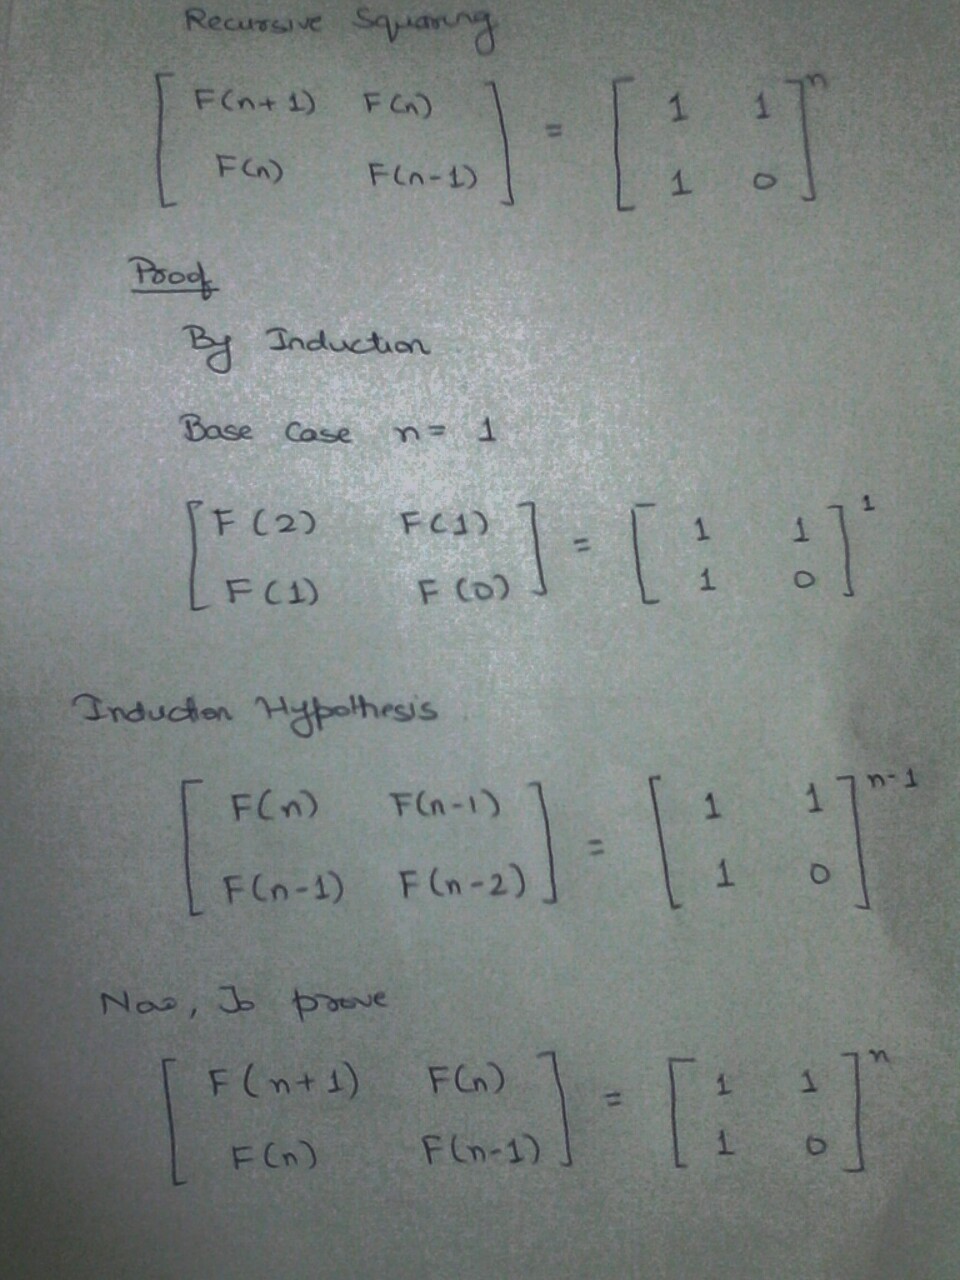 Recursive Squaring
[ F(n+1) F(n) ] = [ 1 1 ]^n
[ F(n) F(n-1) ] [ 1 0 ]
Proof
By Induction
Base Case n = 1
[ F(2) F(1) ] = [ 1 1 ]^1
[ F(1) F(0) ] [ 1 0 ]
Induction Hypothesis
[ F(n) F(n-1) ] = [ 1 1 ]^n-1
[ F(n-1) F(n-2) ] [ 1 0 ]
Now, To prove
[ F(n+1) F(n) ] = [ 1 1 ]^n
[ F(n) F(n-1) ] [ 1 0 ]